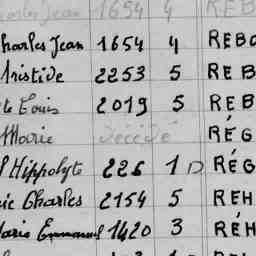 Charles Jean 1654 4 REB
Charles Jean 1654 4 REBO
Aristide 2253 5 REB
te Louis 2019 5 REB
Marie Décédé RÉG
Hippolyte 226 1 D RÉG
ic Charles 2154 5 REH
Marie Emmanuel 1420 3 RÉH